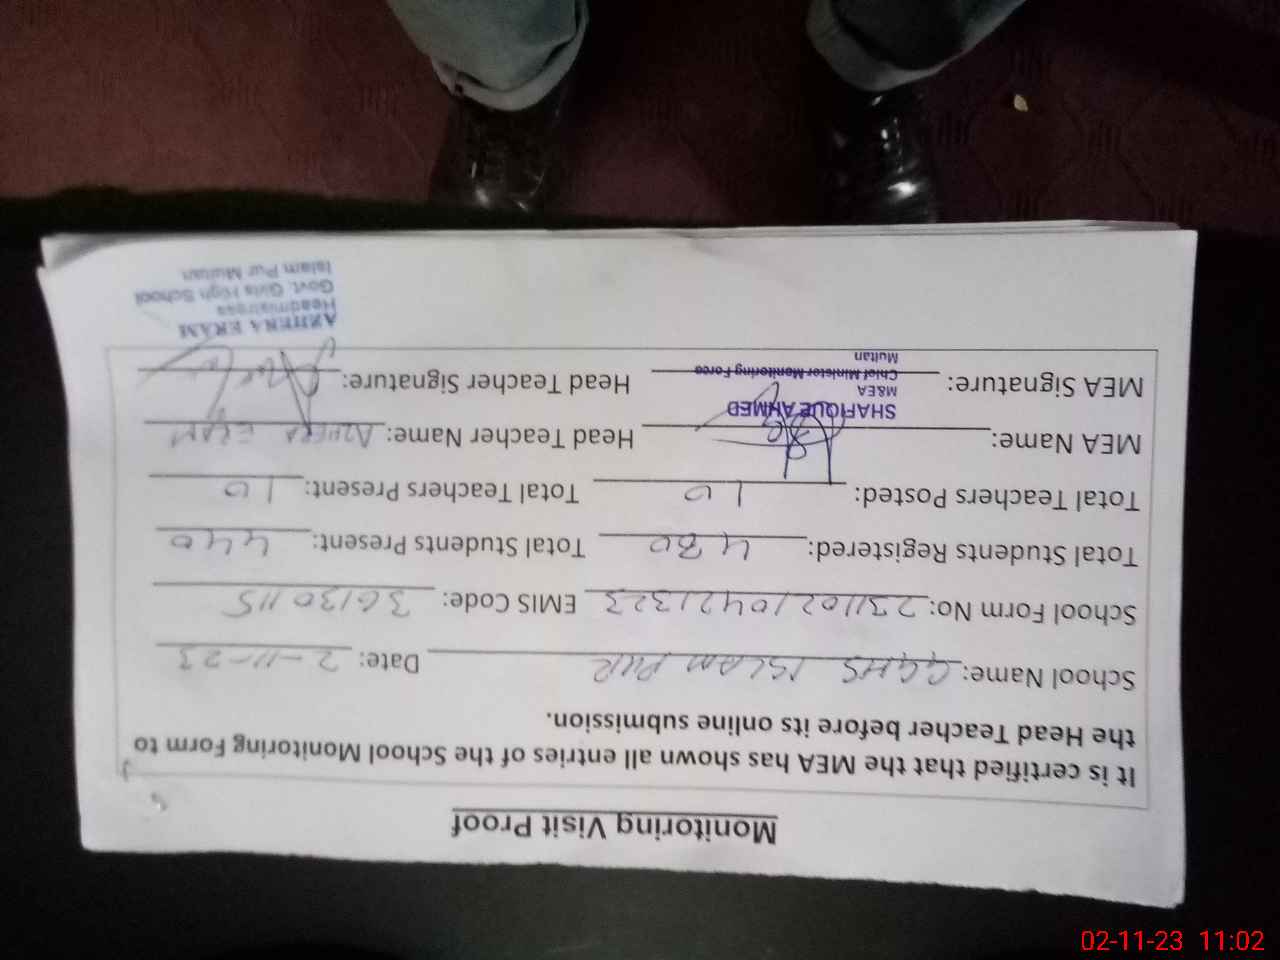 Monitoring Visit Proof
It is certified that the MEA has shown all entries of the School Monitoring Form to
the Head Teacher before its online submission.
School Name: GGHS ISLAM PUR Date: 2-11-23
School Form No: 231102104213 23 EMIS Code: 36130115
Total Students Registered: 480 Total Students Present: 440
Total Teachers Posted: 10 Total Teachers Present: 10
MEA Name: Head Teacher Name: AZHERA ERAM
SHAFIQUE AHMED
M&EA
MEA Signature: Head Teacher Signature:
Chief Minister Monitoring Force
Multan
AZHERA ERAM
Headmistress
Govt. Girls High School
Islam Pur Multan
02-11-23 11:02